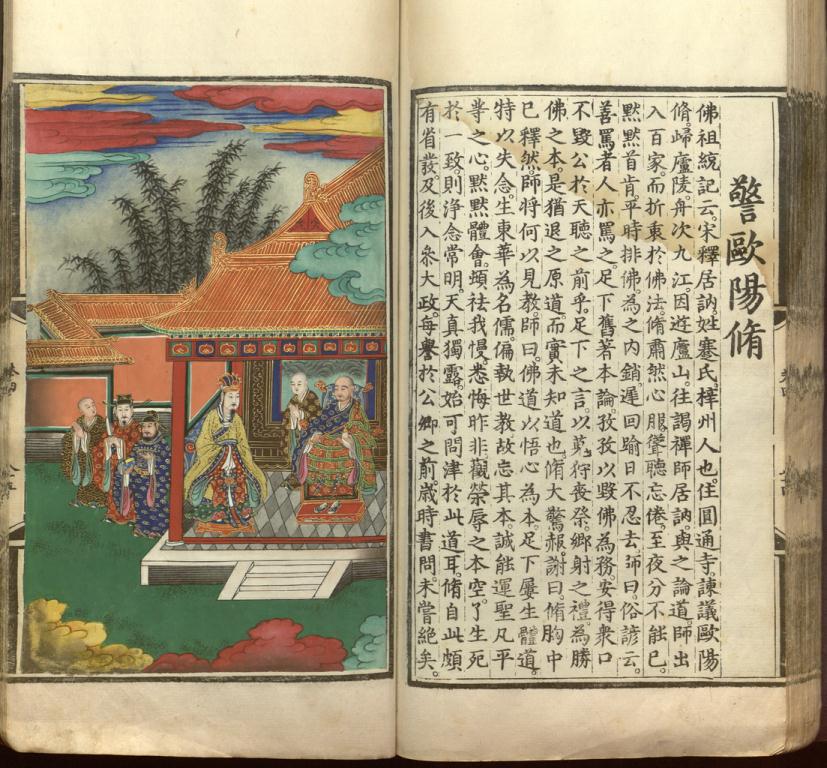 警歐陽脩
佛祖統記云。宋釋居訥。姓蹇氏。梓州人也。住圓通寺。諫議歐陽
脩。歸廬陵。舟次九江。因遊廬山。往謁禪師居訥。與之論道。師出
入百家。而折衷於佛法。脩肅然心服。聳聽忘倦。至夜分不能已。
默默首肯。平時排佛。為之內銷。遲回踰日不忍去。師曰。俗諺云。
善罵者人亦罵之。足下舊著本論。孜孜以毀佛為務。安得衆口
不毀公於天聽之前乎。足下之言。以蒭狗喪祭。鄉射之禮。為勝
佛之本。是猶退之原道。而實未知道也。脩大驚赧。謝曰。脩胸中
已釋然。師將何以見教。師曰。佛道以悟心為本。足下屢生體道。
特以失念。生東華為名儒。偏執世教。故忘其本。誠能運聖凡平
等之心。默默體會。頓祛我慢。悉悔昨非。觀榮辱之本空。了生死
於一致。則淨念常明。天真獨露。始可問津於此道耳。脩自此頗
有省發。及後入參大政。每譽於公卿之前。歲時書問。未嘗絕矣。